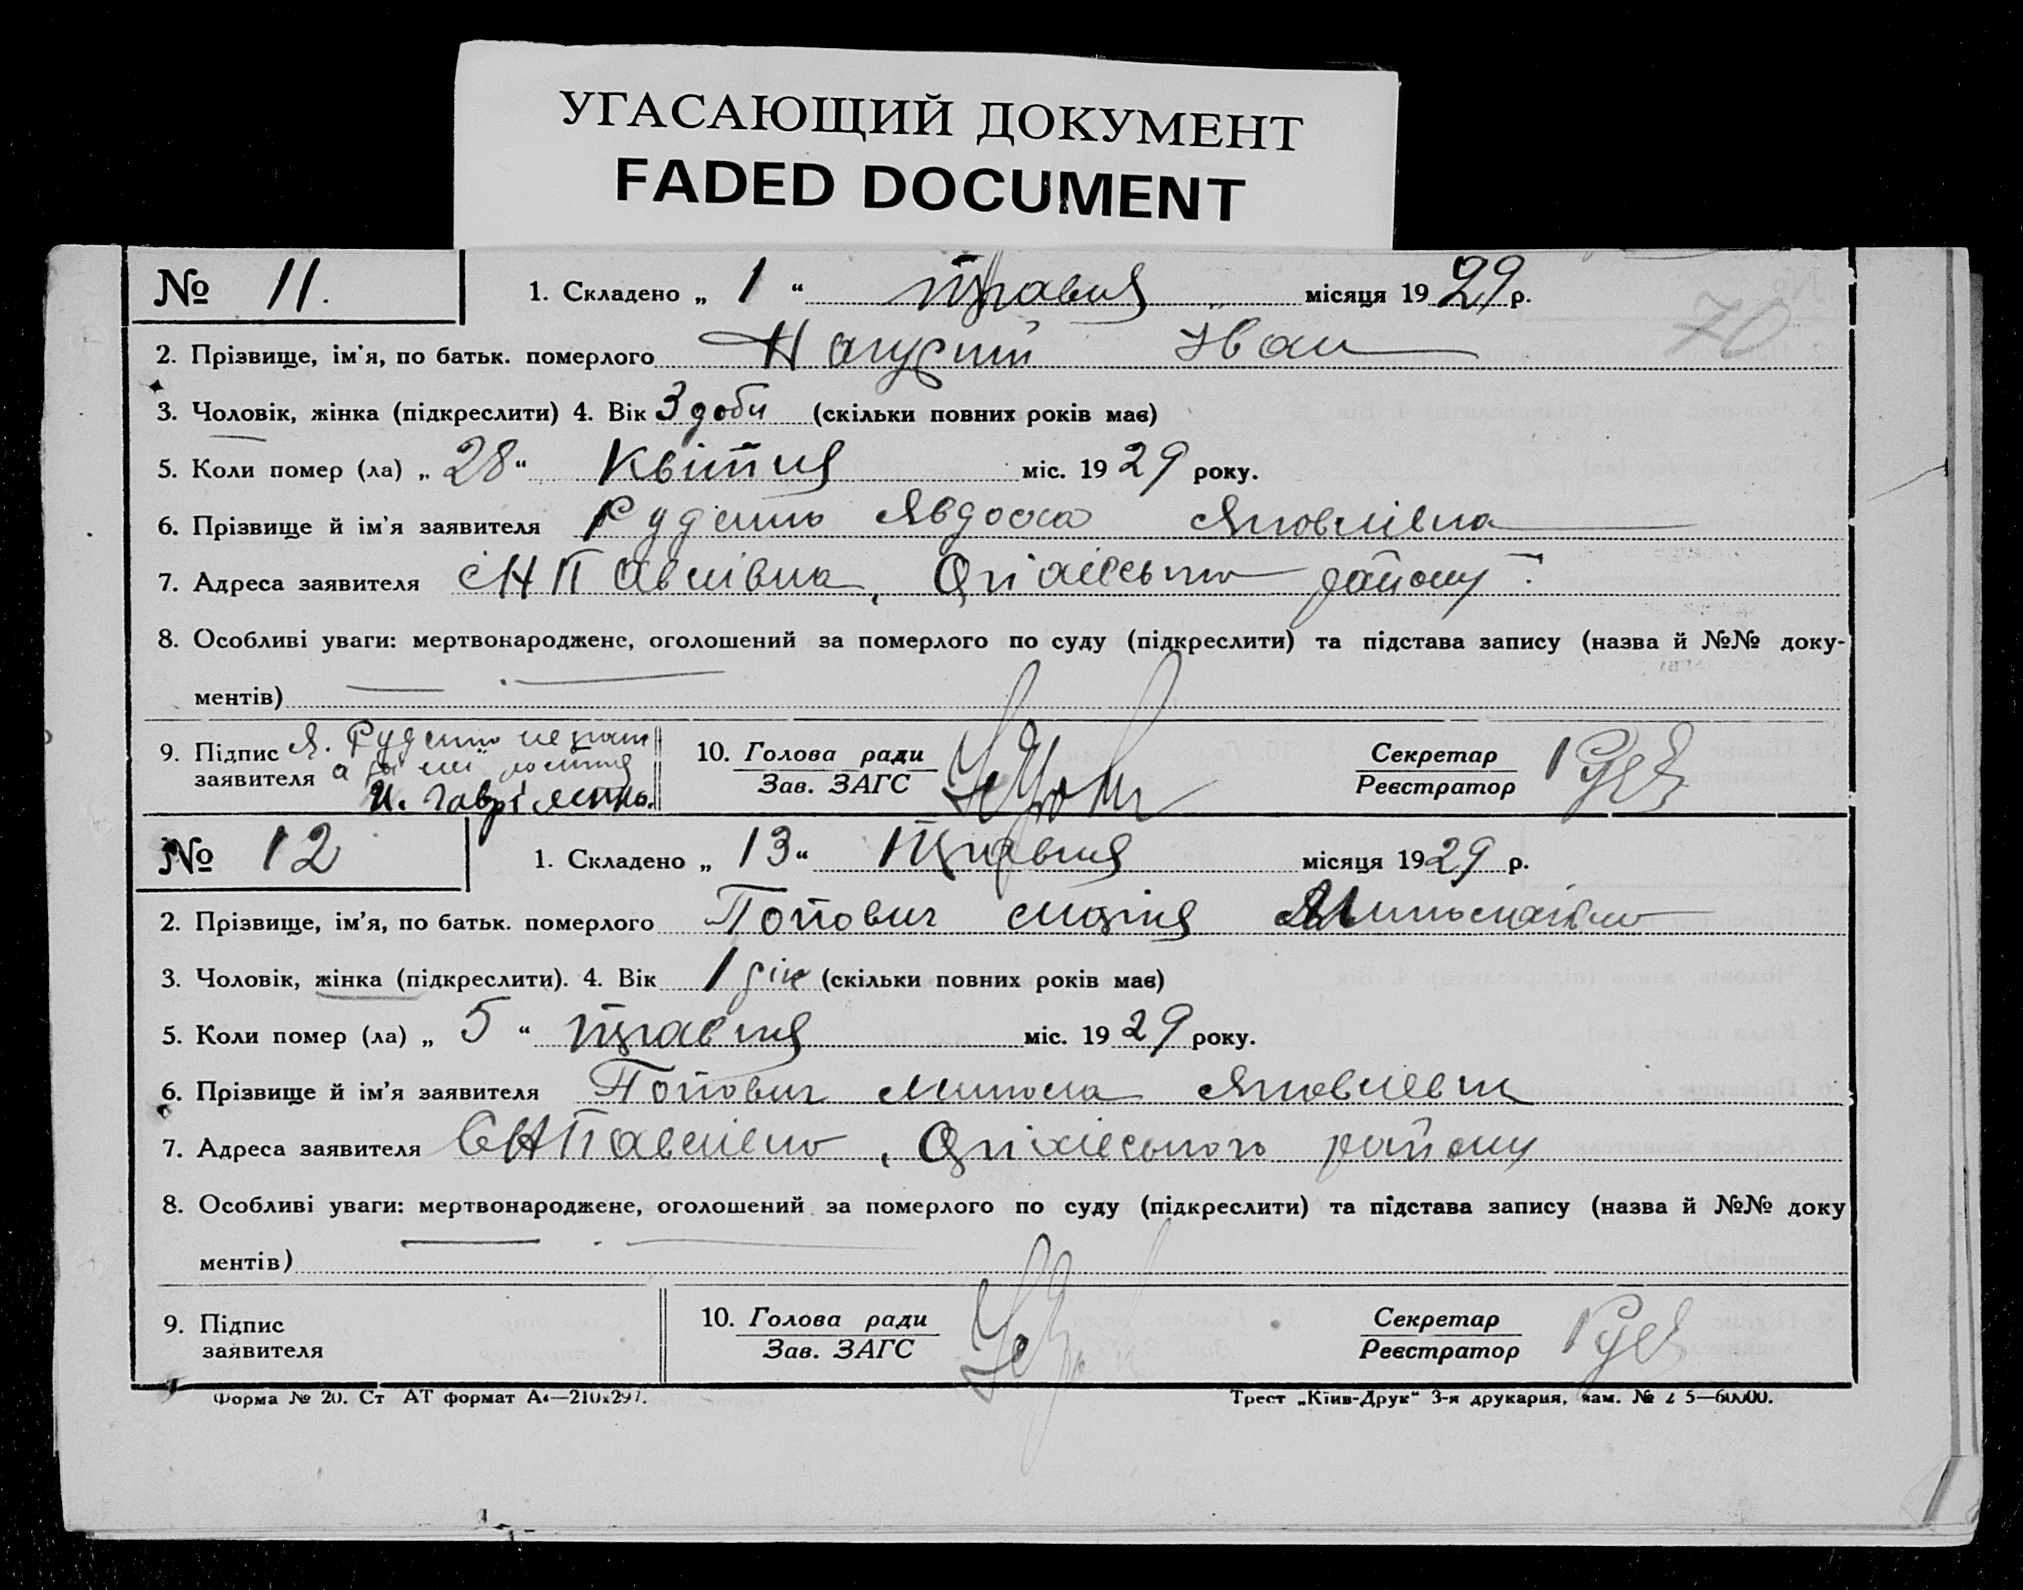 УГАСАЮЩИЙ ДОКУМЕНТ
FADED DOCUMENT
№ 11. 1. Складено „ 1 “ травня місяця 1929 р.
70
2. Прізвище, ім'я, по батьк. померлого Іван
3. Чоловік, жінка (підкреслити) 4. Вік 3 доби (скільки повних років має)
5. Коли помер (ла) „ 28 “ Квітня міс. 1929 року.
6. Прізвище й ім'я заявителя Руденко Явдоха Яковлівна
7. Адреса заявителя с Н Павлівка, району
8. Особливі уваги: мертвонароджене, оголошений за померлого по суду (підкреслити) та підстава запису (назва й №№ доку-
ментів)
9. Підпис Я. Руденко
заявителя а
И. Гаврiленко.
10. Голова ради
Зав. ЗАГС
Секретар
Реєстратор
№ 12 1. Складено „ 13 “ Травня місяця 1929 р.
2. Прізвище, ім'я, по батьк. померлого Попович
3. Чоловік, жінка (підкреслити). 4. Вік 1 рік (скільки повних років має)
5. Коли помер (ла) „ 5 “ травня міс. 1929 року.
6. Прізвище й ім'я заявителя Попович Микола Яковлевич
7. Адреса заявителя с Н Павлівка, району
8. Особливі уваги: мертвонароджене, оголошений за померлого по суду (підкреслити) та підстава запису (назва й №№ доку
ментів)
9. Підпис
заявителя
10. Голова ради
Зав. ЗАГС
Секретар
Реєстратор
Форма № 20. Ст АТ формат А4—210x297. Трест „Київ-Друк“ 3-я друкарня, зам. №